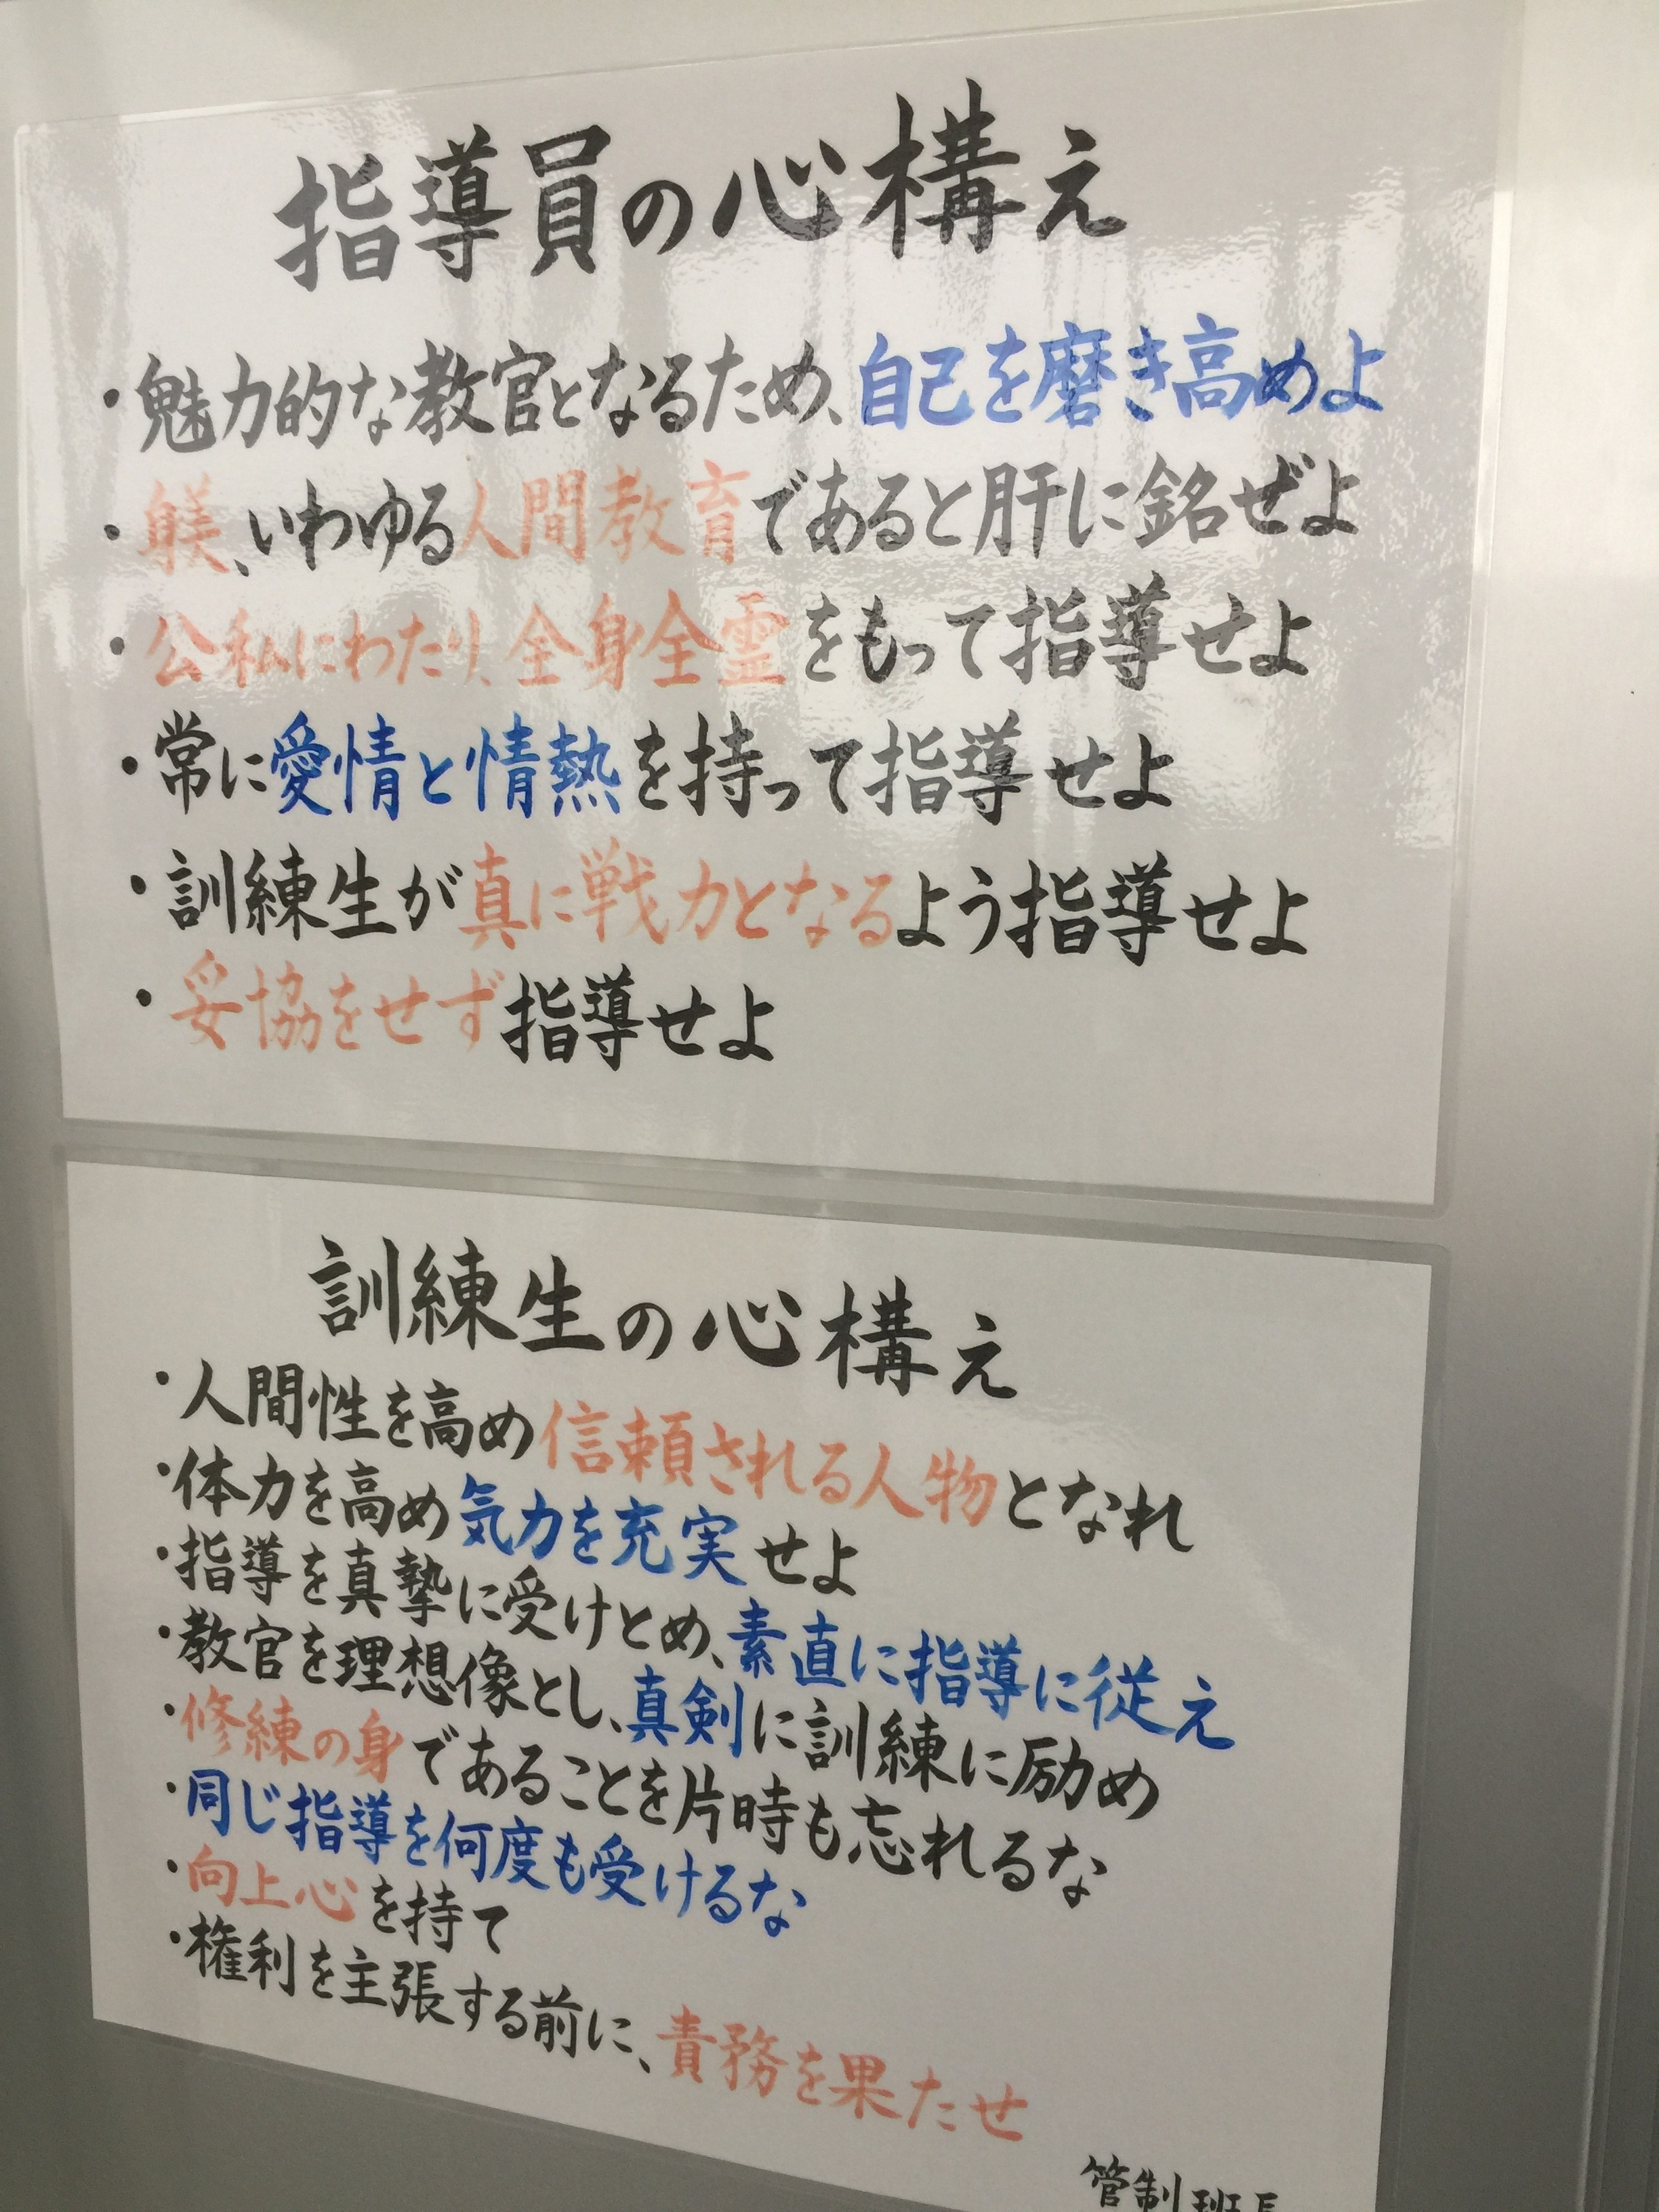 指導員の心構え
・魅力的な教官となるため、自己を磨き高めよ
・躾、いわゆる人間教育であると肝に銘ぜよ
・公私にわたり、全身全霊をもって指導せよ
・常に愛情と情熱を持って指導せよ
・訓練生が真に戦力となるよう指導せよ
・妥協をせず指導せよ
訓練生の心構え
・人間性を高め信頼される人物となれ
・体力を高め気力を充実せよ
・指導を真摯に受けとめ、素直に指導に従え
・教官を理想像とし、真剣に訓練に励め
・修練の身であることを片時も忘れるな
・同じ指導を何度も受けるな
・向上心を持て
・権利を主張する前に、責務を果たせ
管制班長